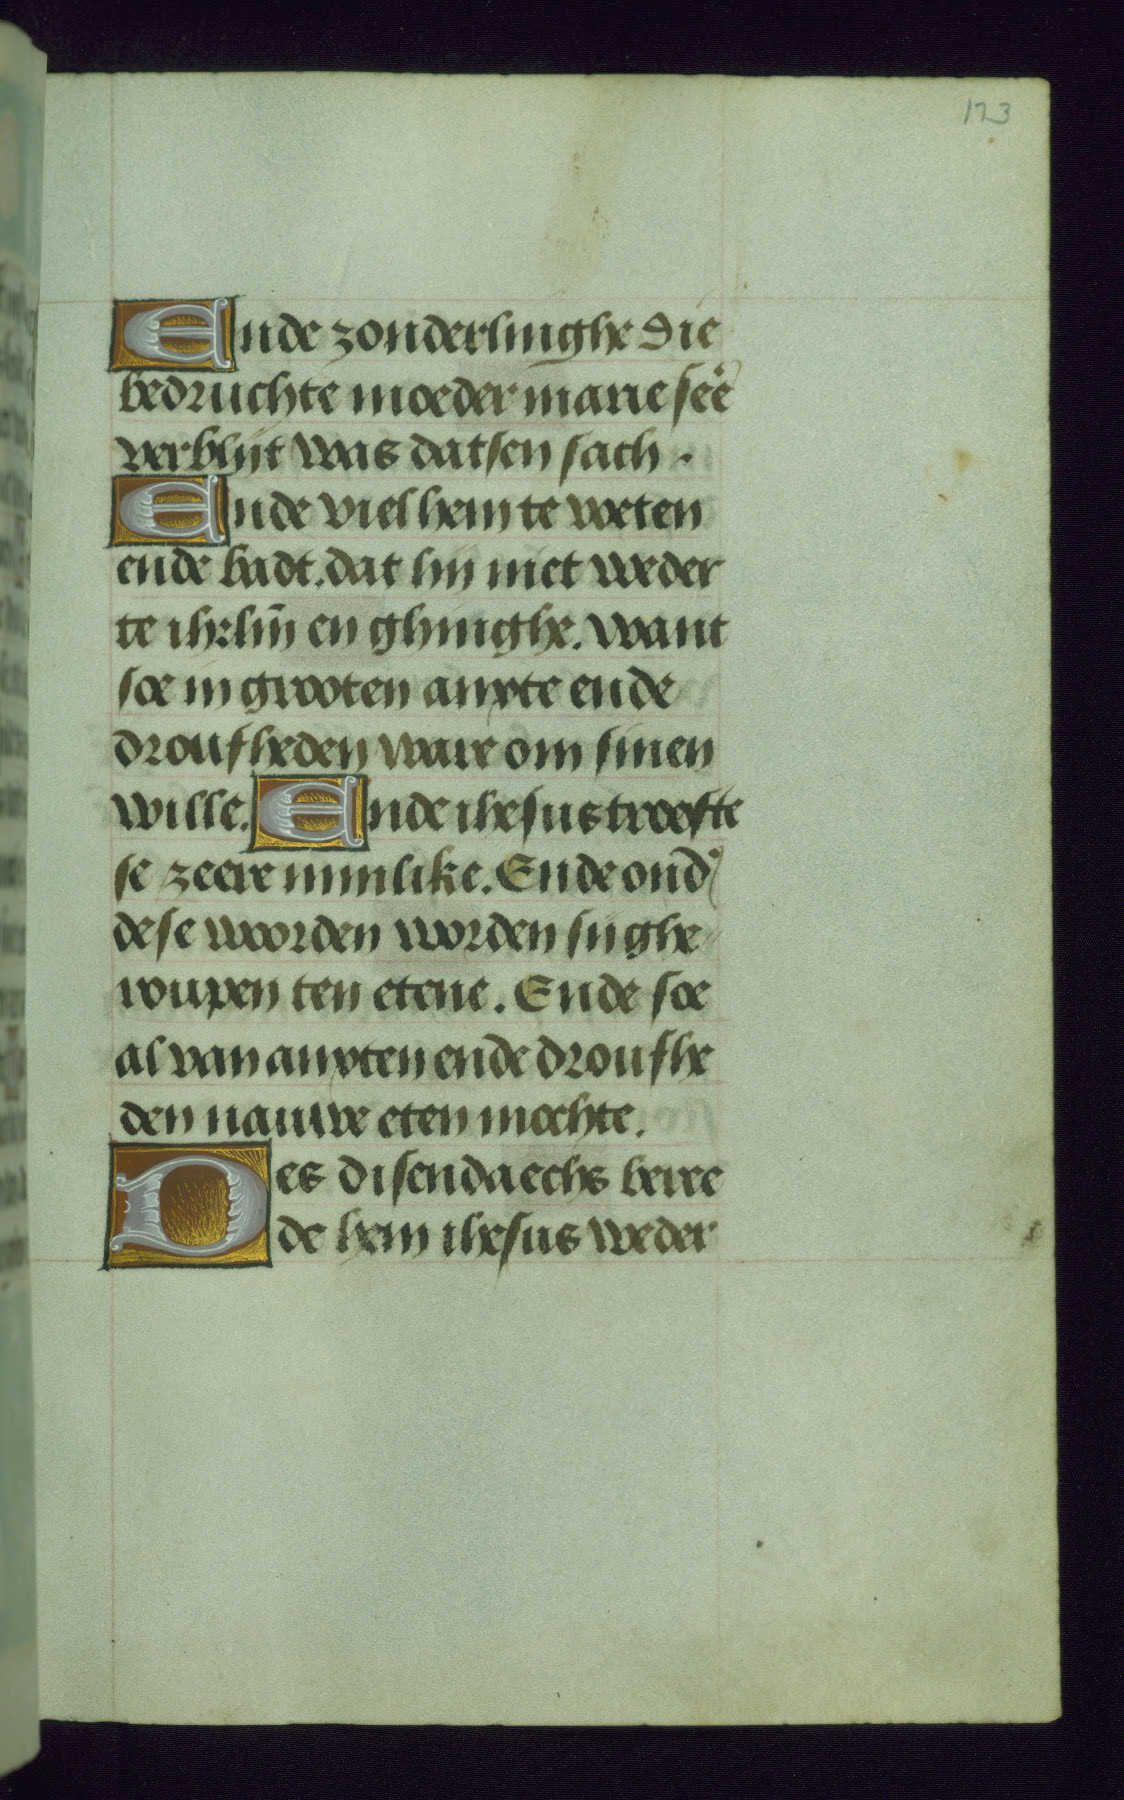 123
Ende zonderlinghe die
bedruchte moeder marie seẽ
verblijt was datsen sach .
Ende viel hem te voeten
ende badt. dat hij niet weder
te ihrlm̄ en ghinghe. want
soe in grooten anxte ende
droufheden ware om sinen
wille. Ende ihesus trooste
se zeere minlike. Ende ond'
dese woorden worden sij ghe
roupen ten etene. Ende soe
al van anxten ende droufhe
den nauwe eten mochte.
Des disendaechs berre
de hem ihesus weder